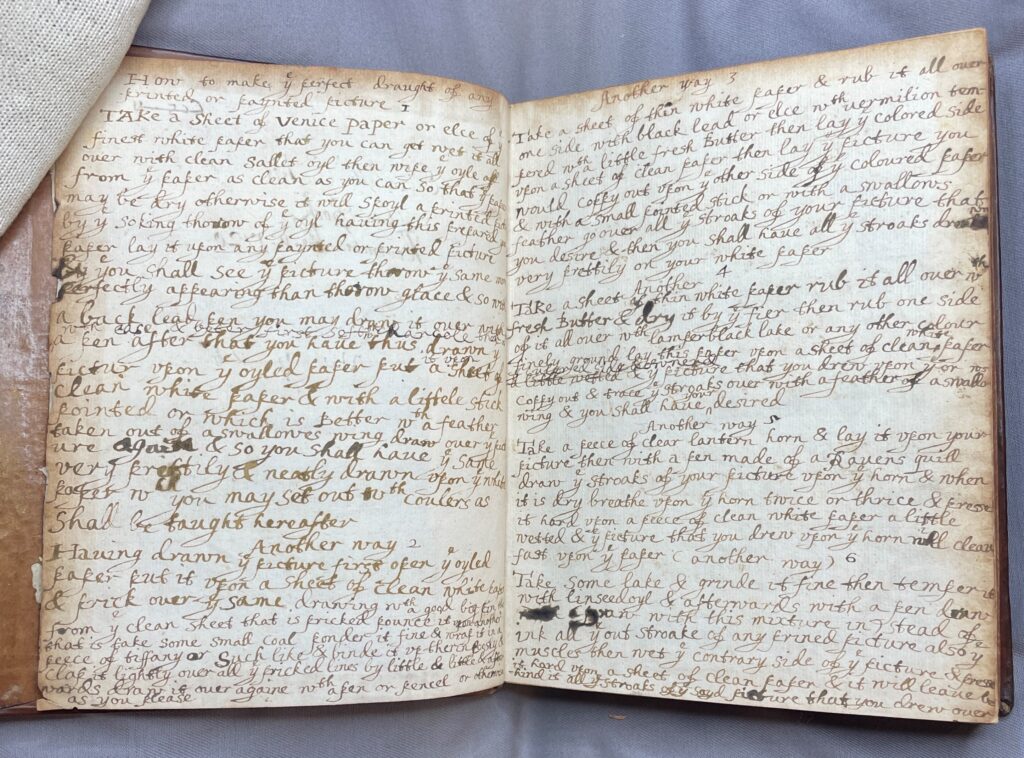 How to make yᵉ perfect draught of any
printed or paynted picture 1
TAke a Sheet of Venice Paper or elce of yᵉ
finest white paper that you can get wet it all
over with clean Sallet oyl then wipe yᵉ oyle off
from yᵉ paper as clean as you can So that yᵉ paper
may be dry otherwise it will Spoyl a printed
by yᵉ Soking thorow of yᵉ oyl having this prepared yᵉ
paper lay it upon any paynted or printed picture
& you Shall See yᵉ picture thorow yᵉ same
perfectly appearing than thorow glace & So with
a black lead pen you may draw it over with
with ease & better first Soft
a pen after that you have thus drawn yᵉ
it upon
pictur vpon yᵉ oyled paper put a sheet of
clean white paper & with a littele Stick
pointed or which is Better wᵗʰ a feather
taken out of a Swallowes wing draw over yᵉ pict
ure again & So you Shall have yᵉ Same
very prettily & neatly drawn vpon yᵉ white
paper wᶜʰ you may Set out wᵗʰ Coulers as
Shall be taught hereafter
Another way 2
Having drawn yᵉ picture first open yᵉ oyled
paper put it vpon a Sheet of clean white paper
& prick over yᵉ Same drawing wᵗʰ a good pin then
from yᵉ clean Sheet that is pricked pounce it upon another
that is take Some small Coal ponder it fine & wrap it in a
peece of tiffany or Such like & binde it vp therein
clap it lightly over all yᵉ pricked lines by little & little & after
wards draw it over againe wᵗʰ a pen or pencel or otherwise
as you please
Another way 3
Take a sheet of thin white paper & rub it all over
one side with black lead or elce wᵗʰ vermilion tem-
pered wᵗʰ a little fresh Butter then lay yᵉ colored side
vpon a sheet of clean paper then lay yᵉ picture you
would coppy out vpon yᵉ other side of yᵉ coloured paper
& with a small pointed stick or with a swallows
feather go over all yᵉ stroaks of your picture that
you desire & then you Shall have all yᵉ stroaks drawn
very prettily on your white paper
Another 4
Take a sheet of thin white paper rub it all over wᵗʰ
fresh Butter & dry it by yᵉ fier then rub one side
of it all over wᵗʰ lamperblack lake or any other colour
finely ground lay this paper vpon a sheet of clean white paper
coloured side
a little wetted & yᵉ picture that you drew vpon yᵉ
Coppy out & trace yᵉ stroaks over with a feather of a swallows
wing & you shall have your desired
Another way 5
Take a peece of clear lantern horn & lay it vpon your
picture then with a pen made of a Ravens quill
draw yᵉ strokes of your picture vpon yᵉ horn & when
it is dry breathe vpon yᵉ horn twice or thrice & presse
it hard vpon a peece of clean white paper a little
wetted & yᵉ picture that you drew vpon yᵉ horn will cleav
fast vpon yᵉ paper ( another way ) 6
Take some lake & grinde it fine then temper it
with linseedoyl & afterwards with a pen draw
with this mixture in stead of
ink all yᵉ out stroake of any prined picture also yᵉ
muscles then wet yᵉ contrary side of yᵉ picture & presse
it hard vpon a sheet of clean paper & it will leave be
hind it all yᵉ stroaks of yᵉ sayd picture that you drew over